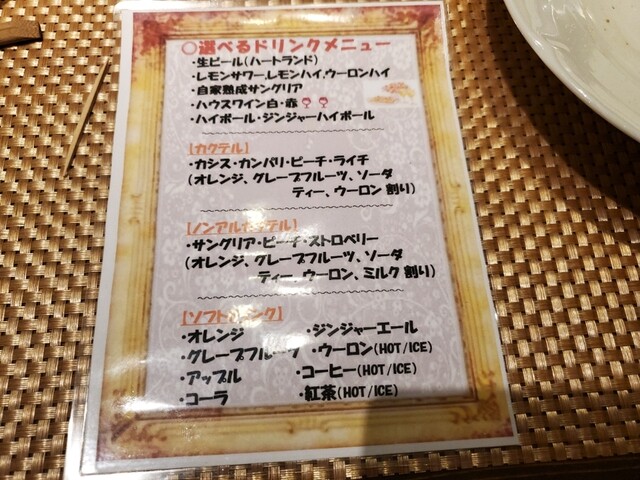 ○選べるドリンクメニュー
・生ビール(ハートランド)
・レモンサワー、レモンハイ、ウーロンハイ
・自家熟成サングリア
・ハウスワイン白・赤
・ハイボール・ジンジャーハイボール
【カクテル】
・カシス・カンパリ・ピーチ・ライチ
(オレンジ、グレープフルーツ、ソーダ
ティー、ウーロン 割り)
【ノンアルカクテル】
・サングリア・ピーチ・ストロベリー
(オレンジ、グレープフルーツ、ソーダ
ティー、ウーロン、ミルク 割り)
【ソフトドリンク】
・オレンジ ・ジンジャーエール
・グレープフルーツ ・ウーロン(HOT/ICE)
・アップル ・コーヒー(HOT/ICE)
・コーラ ・紅茶(HOT/ICE)